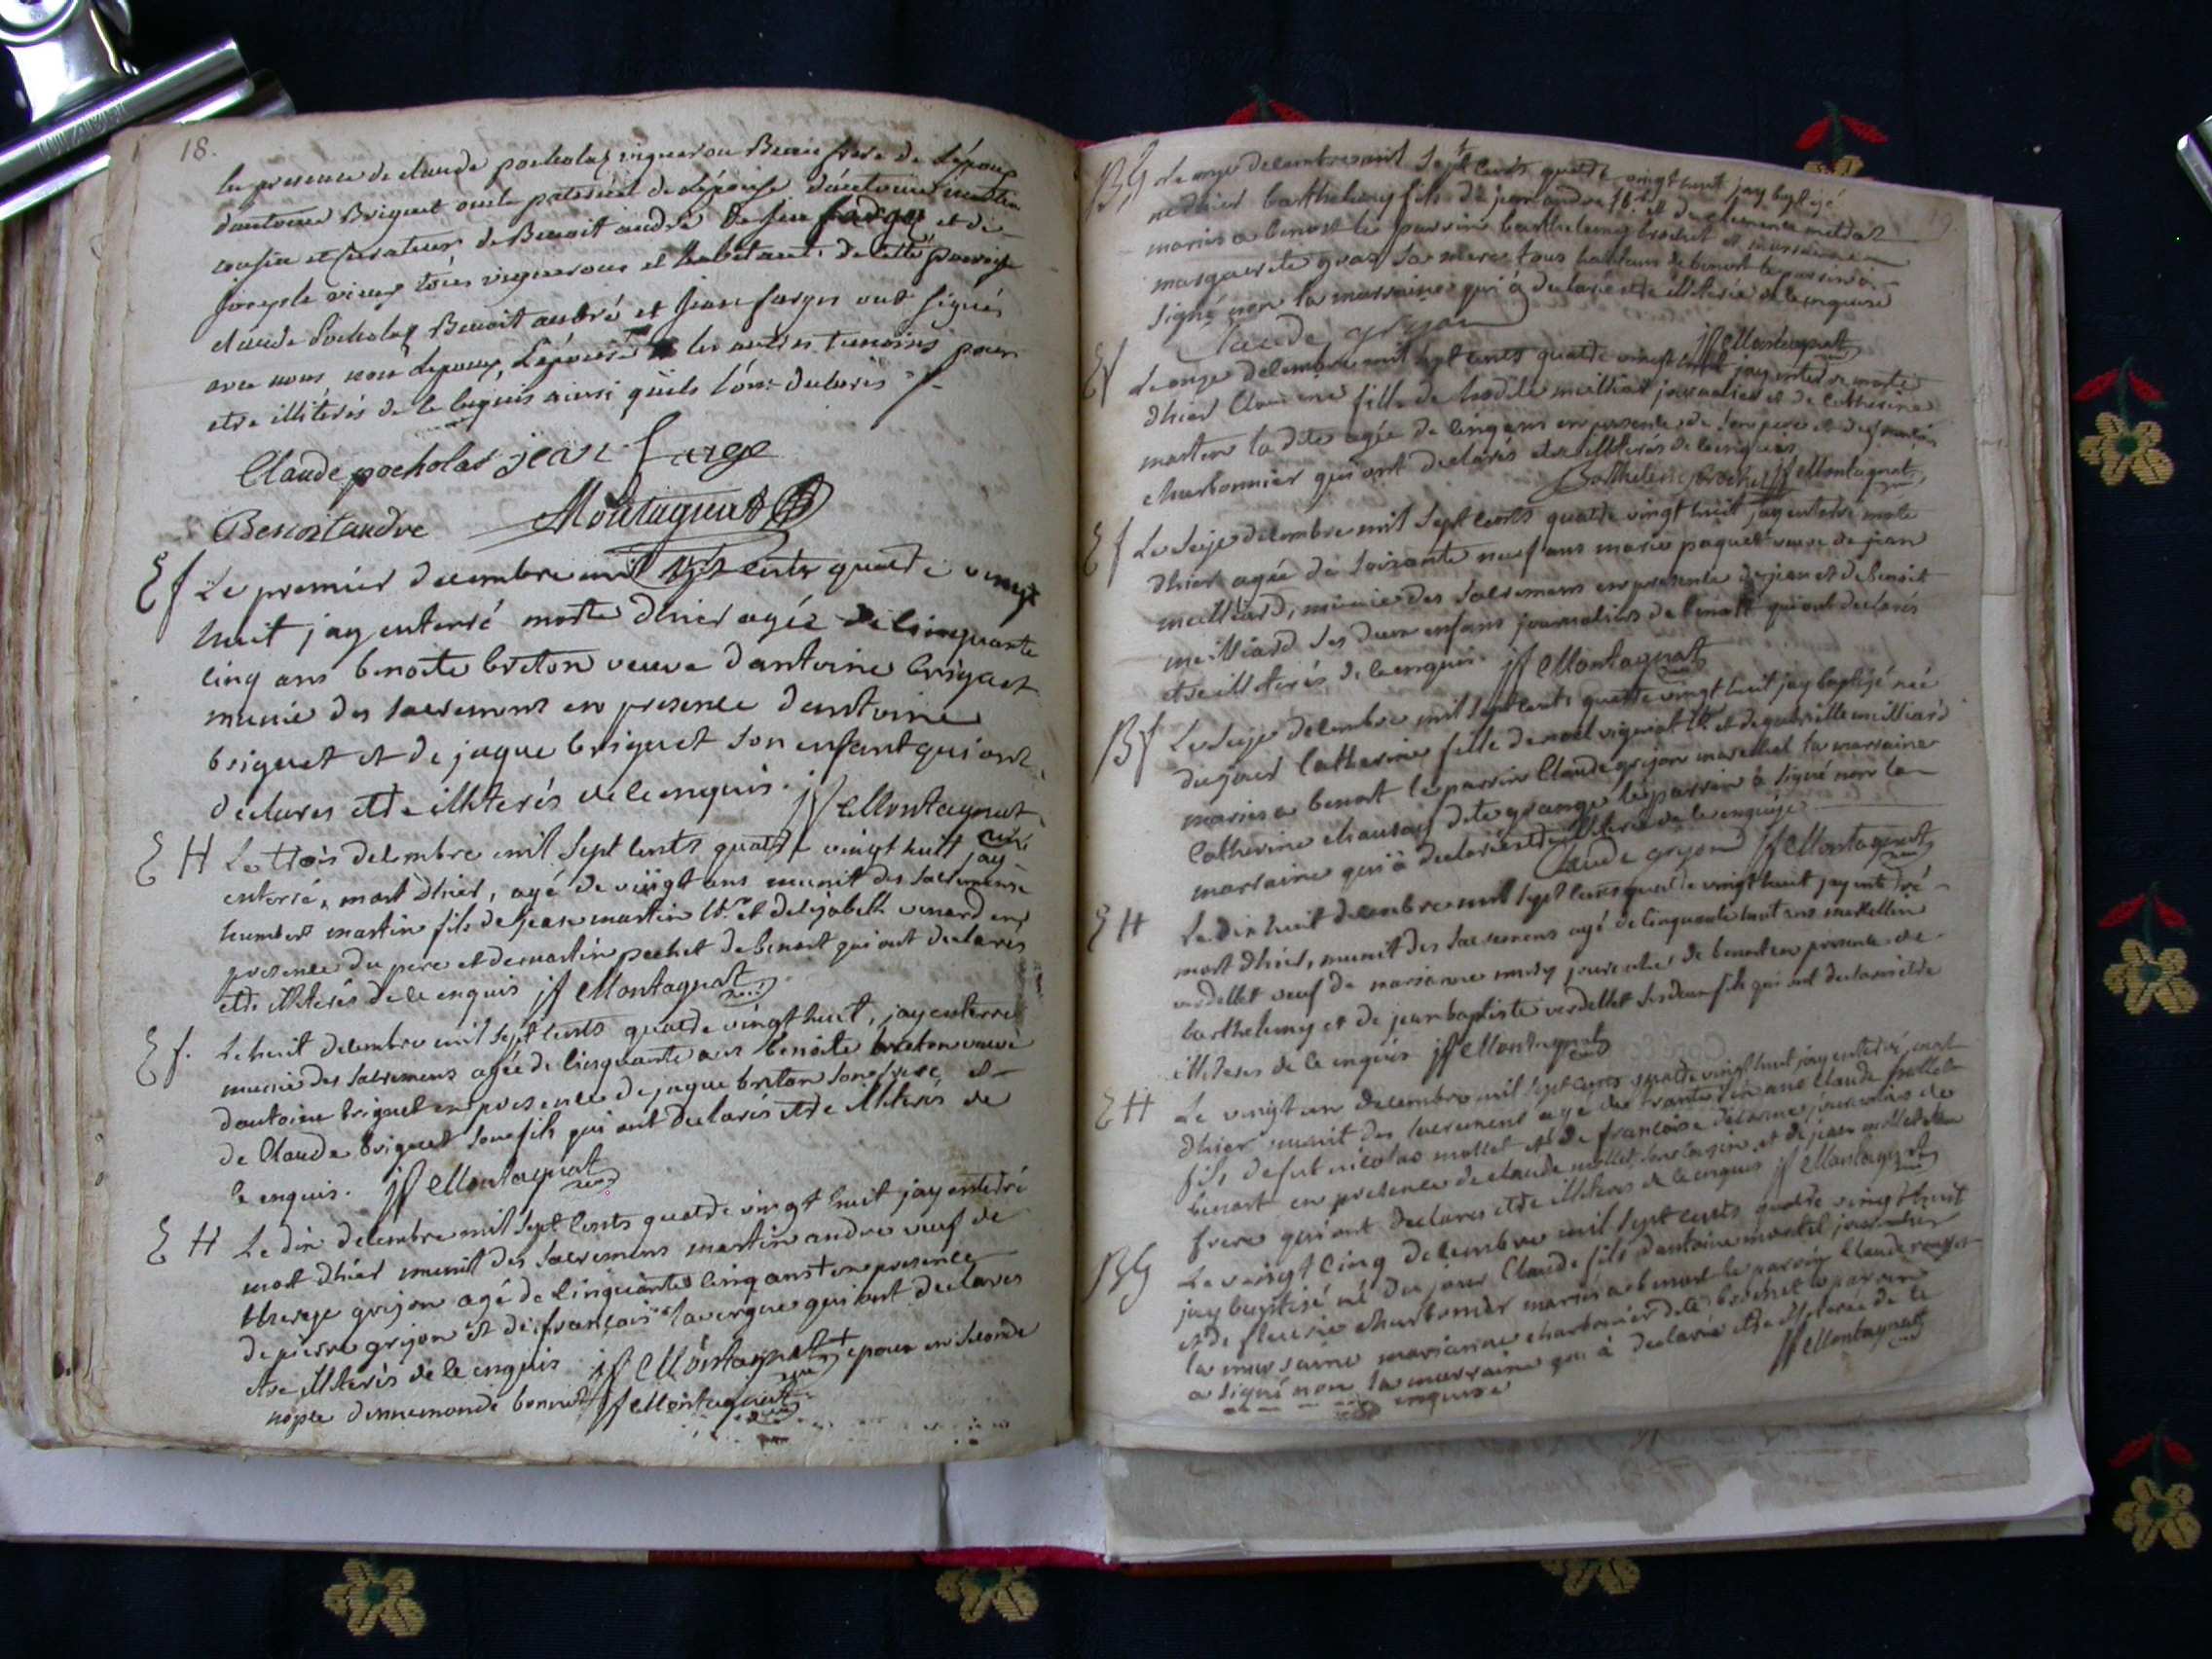 18.
la presence de claude pocholat vigneron Beau frere de L'époux
d'antoine Briguet oncle paternel de L'épouse d'antoine martin
cousin et Curateur de Benoit andré de jean farges et de
joseph vieux tous vignerons et habitants de cette paroisse
claude Pocholat Benoit andré et jean farges ont signés
avec nous non L'époux, L'épouse les autres temoins pour
etre illiterés de le enquis ainsi qu'ils l'ont declarés
Claude pocholat jean farge
Benoit andre Montagnat
E f Le premier decembre mil sept cents quatre vingt
huit jay enterré morte dhier agée de cinquante
cinq ans benoite breton veuve dantoine briguet
munie des sacremens en presence dantoine
briguet et de jaque briguet son enfant qui ont
declares etre illiterés de ce enquis. jf Montagnat
curé
E H Le trois decembre mil sept cents quatre vingt huit jay
enterré, mort dhier, agé de vingt ans munit des sacremens
humbert martin fils de jean martin lb.r et delizabeth venard en
presence du pere et de martin pochet de benost qui ont declarés
etre illiterés de ce enquis jf Montagnat
E f. Le huit decembre mil sept cents quatre vingt huit, jay enterré
munie des sacremens agée de cinquante ans benoite breton veuve
dantoine briguet en presence de jaque breton son frere, et
de Claude briguet son fils qui ont declarés etre illiterés de
ce enquis. jf Montagnat
E H Le dix decembre mil sept cents quatre vingt huit jay enterré
mort dhier munit des sacremens martin andre veuf de
therese grijon agé de cinquante cinq ans + en presence
de pierre grijon et de françois lavergne qui ont declares
etre illiterés de ce enquis jf Montagnat + epoux en seconde
nopce dennemonde bonnet jf Montagnat
19
BG Le onze decembre mil sept cents quatre vingt huit jay baptizé
né dhier barthelemy fils de jean andre lb.r et de clemence
mariés a benost le parrin barthelemy brochet et marraine
marguerite gras sa mere tous habitans de benost le parrin a
signé non la marraine qui à declaré etre illiterée de ce enquise
Claude grijon jf Montagnat
E f Le onze decembre mil sept cents quatre vingt huit jay enterré morte
dhier fille de milliat journalier et de catherine
martin la dite agée de cinq ans en presence de son pere et de
charbonnier qui ont declarés etre illiterés de ce enquis
Barthelemy brochet jf Montagnat
E f Le seize decembre mil sept cents quatre vingt huit jay enterré morte
dhier agée de soixante neuf ans marie paquet veuve de jean
milliard, munie des sacremens en presence de jean et de benoit
milliard ses deux enfans journaliers de benost qui ont declarés
etre illiterés de ce enquis. jf Montagnat
B f Le seize decembre mil sept cents quatre vingt huit jay baptizé née
du jour Catherine fille de noel vignat lb.r et de gabrielle milliard
mariés a benost le parrin Claude grijon marechal la marraine
Catherine chausay dite grange le parrin à signé non la
marraine qui à declarée etre illiterée de ce enquise
Claude grijon jf Montagnat
E H Le dix huit decembre mil sept cents quatre vingt huit jay enterré
mort dhier, munit des sacremens agé de cinquante huit ans marcellin
verdellet veuf de marianne journalier de benost en presence de
barthelemy et de jean baptiste verdellet ses deux fils qui ont declarés etre
illiterés de ce enquis jf Montagnat
E H Le vingt un decembre mil sept cents quatre vingt huit jay enterré, mort
dhier munit des sacremens agé de trante six ans Claude mollet
fils defut nicolas mollet et de francoise journalier de
benost en presence de claude mollet son cousin et de jean mollet son
frere qui ont declares etre illiterés de ce enquis jf Montagnat
BG Le vingt cinq decembre mil sept cents quatre vingt huit
jay baptisé né du jour Claude fils dantoine martel journalier
et de fleurie charbonier mariés a benost le parrin Claude
la marraine marianne charbonier dite brochet le parrin
a signé non la marraine qui à declarée etre illiterée de ce
enquise jf Montagnat